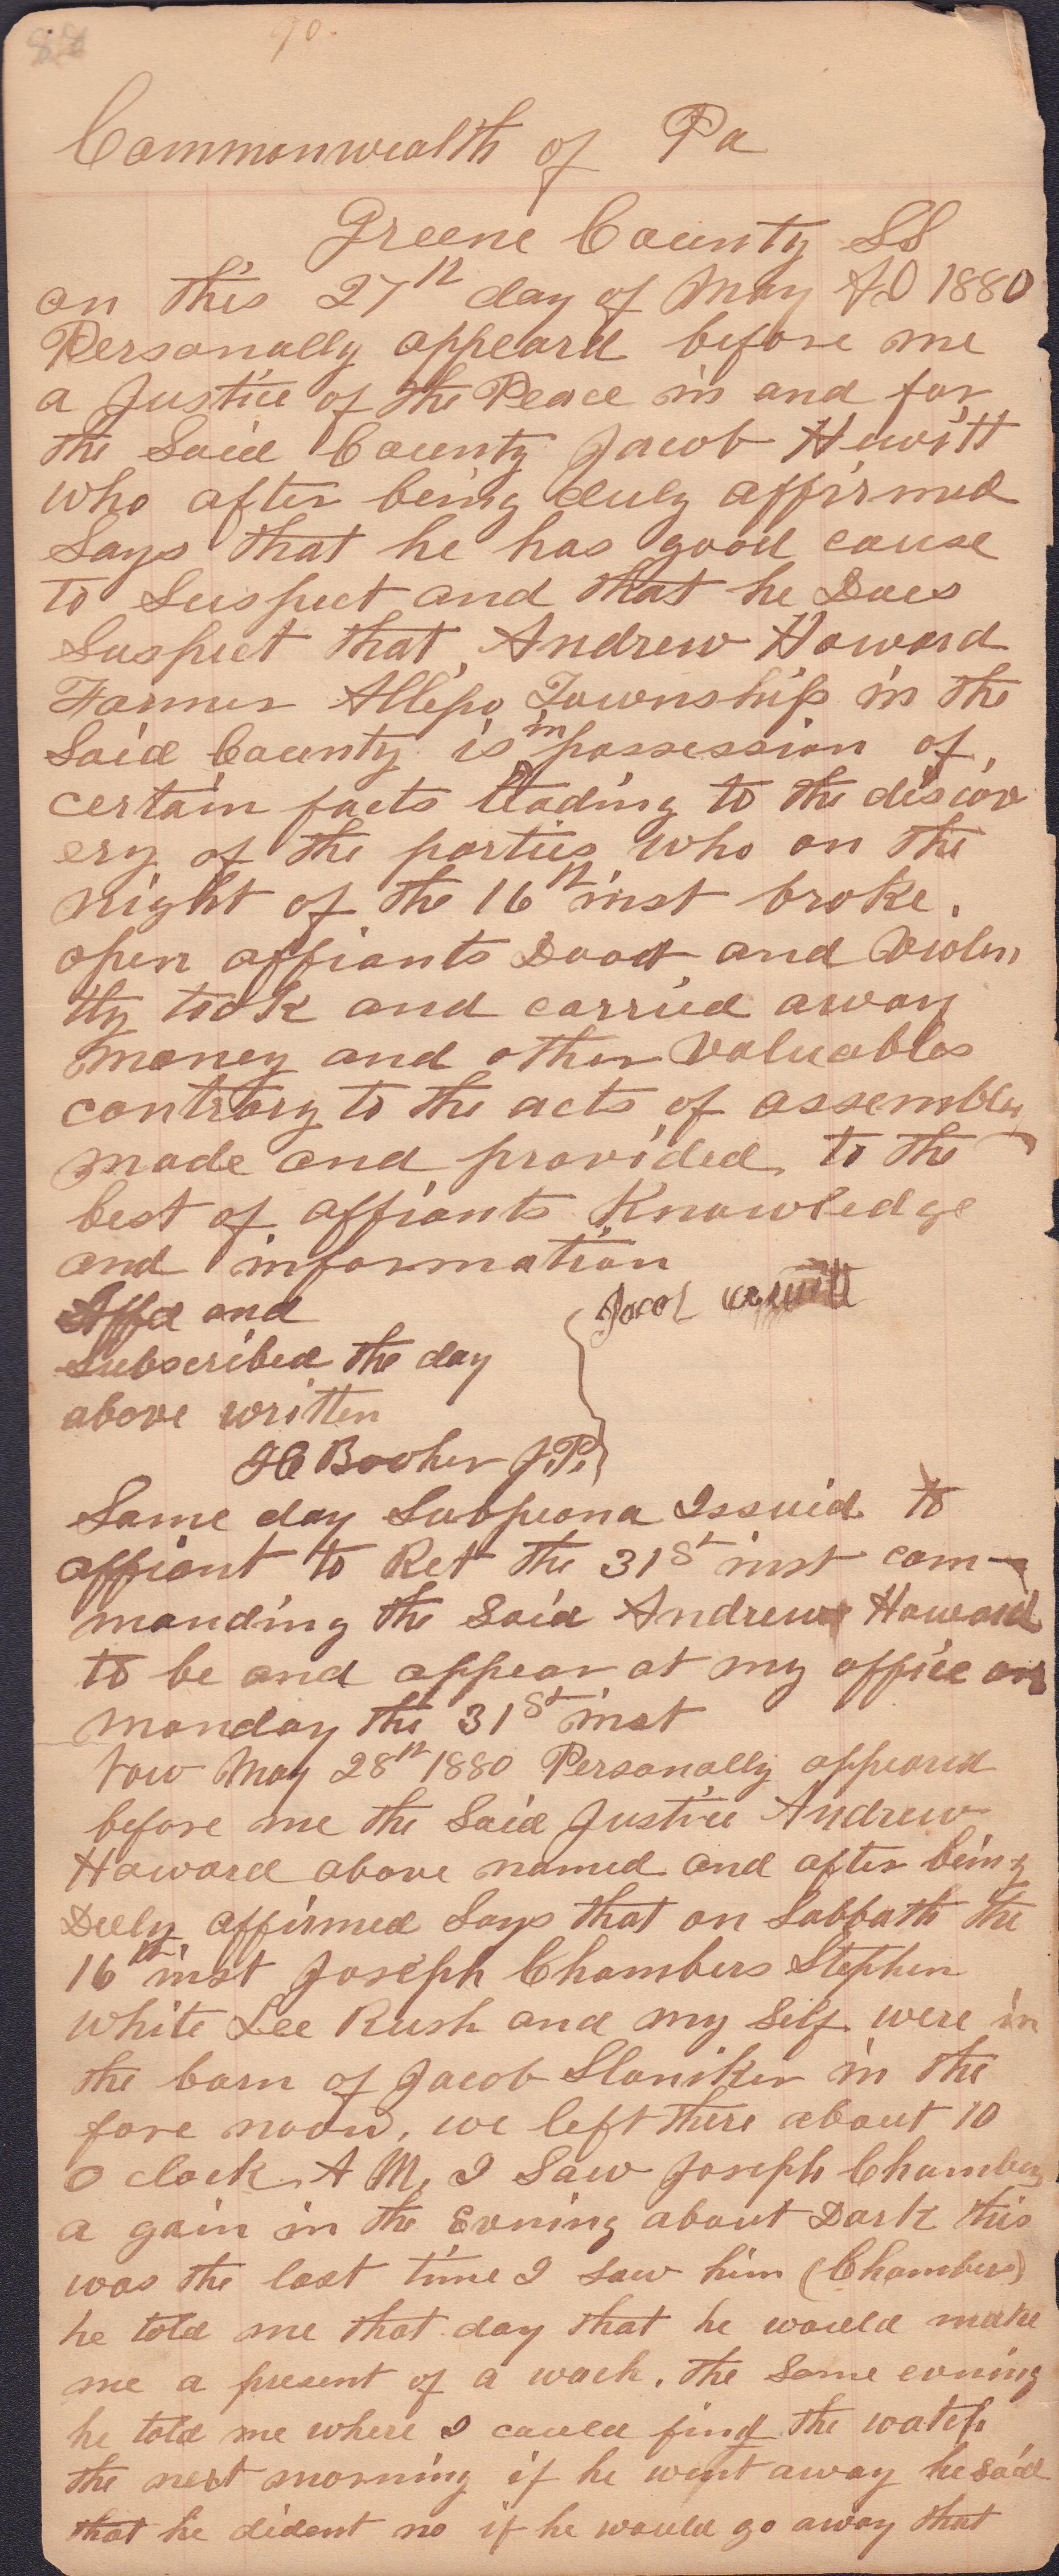 90.
Commonwealth of Pa
Greene County SS
on this 27th day of May AD 1880
Personally appeard before me
a Justice of the Peace in and for
the Said County Jacob Hewitt
who after being duly affirmed
Says that he has good cause
to Suspect and that he Does
Suspect that Andrew Howard
Farmer Allepo Township in the
Said County is in possession of
certain facts leading to the discov
ery of the parties who on the
night of the 16th inst broke
open affiants Door and violen
tly took and carried away
money and other valuables
contrary to the acts of assembly
made and provided to the
best of affiants Knowledge
and information
Affd and Jacob
Subscribed the day
above written
Booher J.P.
Same day Subpeona Issued to
affiant to Ret the 31st inst com-
manding the Said Andrew Howard
to be and appear at my office on
monday the 31st inst
Now May 28th 1880 Personally appeard
before me the Said Justice Andrew
Howard above named and after being
Duly affirmed Says that on Sabbath the
16th inst Joseph Chambers Stephen
White Lee Rush and my Self were in
the barn of Jacob Sloniker in the
fore noon, we left there about 10
O clock A M, I Saw Joseph Chambers
a gain in the Evning about Dark this
was the last time I saw him (Chambers)
he told me that day that he would make
me a present of a wach. the same evning
he told me where I could find the watch
the next morning if he went away he said
that he dident no if he would go away that